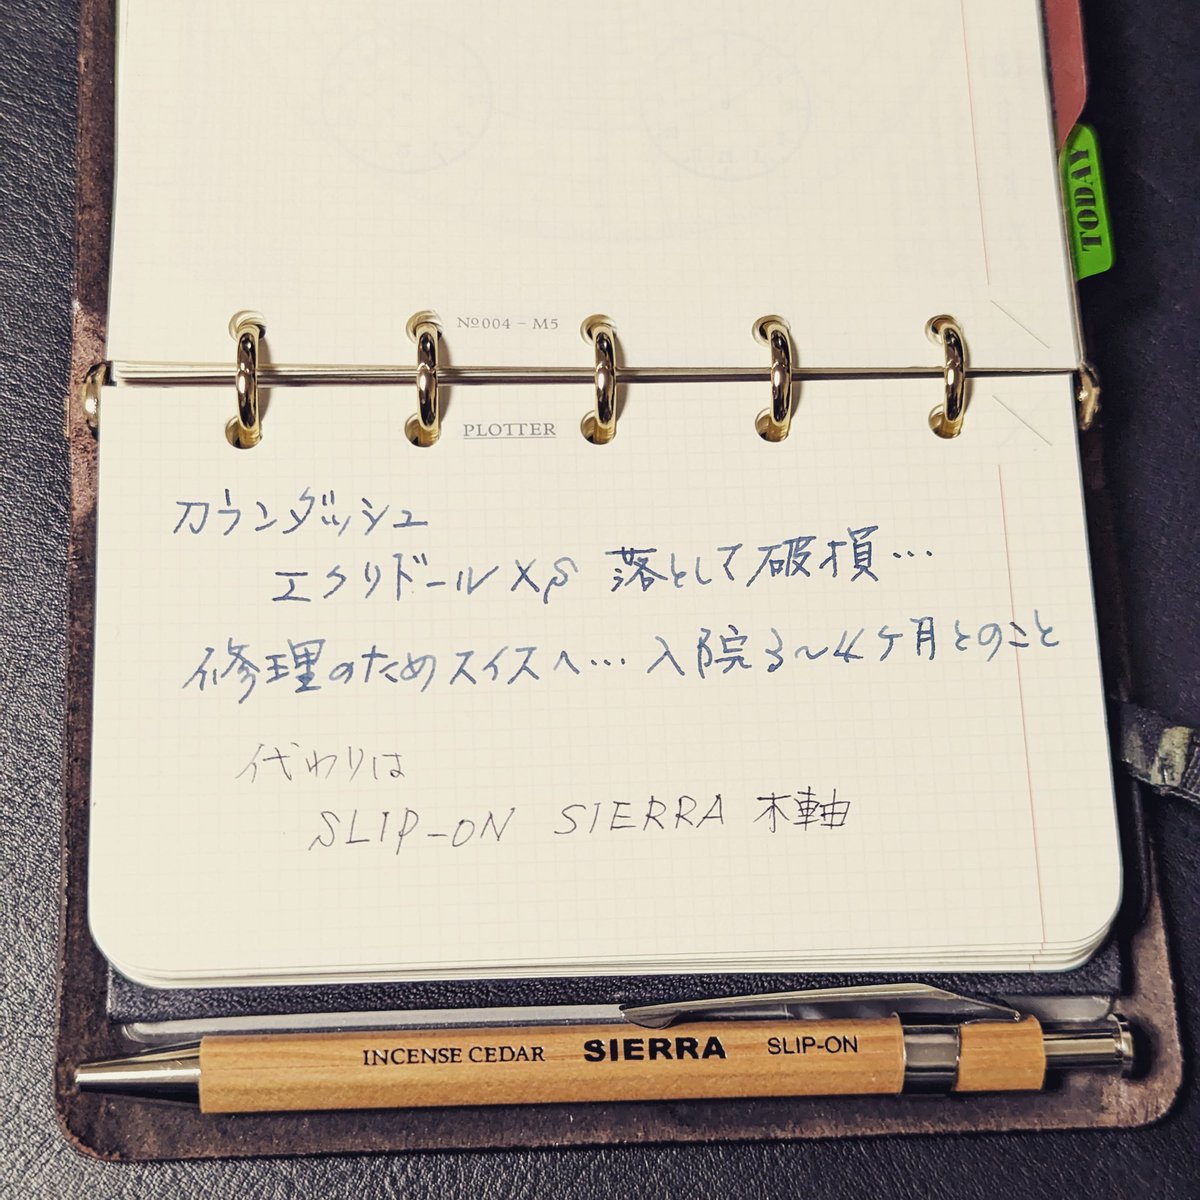 TODAY
№004 - M5
PLOTTER
カランダッシュ
エクリドールXS 落として破損…
修理のためスイスへ… 入院3〜4ケ月とのこと
代わりは
SLIP-ON SIERRA 木軸
INCENSE CEDAR SIERRA SLIP-ON